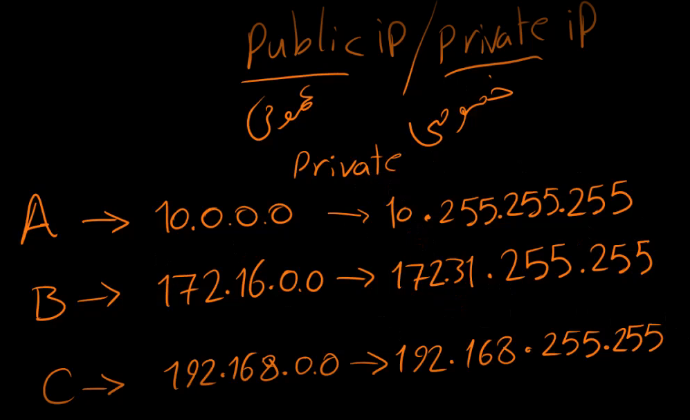 Public iP / Private iP
عمومی خصوصی
Private
A → 10.0.0.0 → 10.255.255.255
B → 172.16.0.0 → 17231.255.255
C → 192.168.0.0 → 192.168.255.255